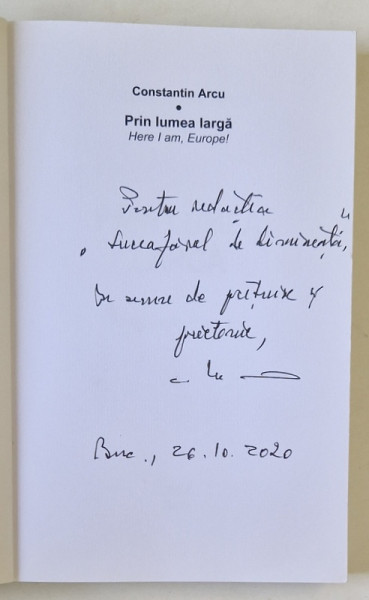 Constantin Arcu
•
Prin lumea largă
Here I am, Europe!
Pentru redacția
„Luceafărul de dimineață”,
în semn de prețuire și
prietenie,
Buc., 26.10.2020